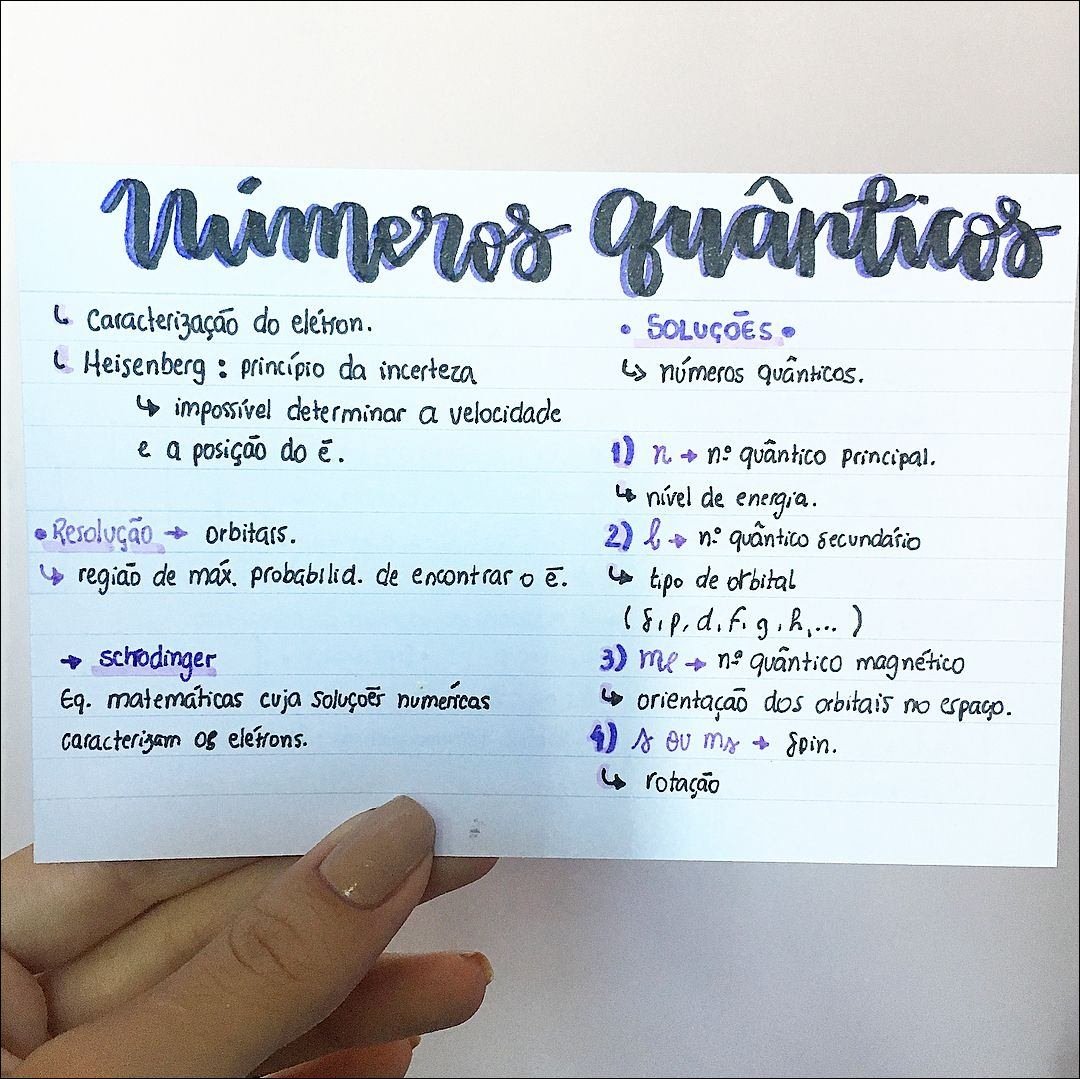 Números quânticos
↳ Caracterização do elétron.
↳ Heisenberg : princípio da incerteza
↳ impossível determinar a velocidade
e a posição do ē.
• Resolução → orbitais.
↳ região de máx. probabilid. de encontrar o ē.
→ schrodinger
Eq. matemáticas cuja soluções numéricas
caracterizam os elétrons.
• SOLUÇÕES •
↳ números quânticos.
1) n → nº quântico principal.
↳ nível de energia.
2) l → nº quântico secundário
↳ tipo de orbital
(s, p, d, f, g, h, ... )
3) ml → nº quântico magnético
↳ orientação dos orbitais no espaço.
4) s ou ms → spin.
↳ rotação